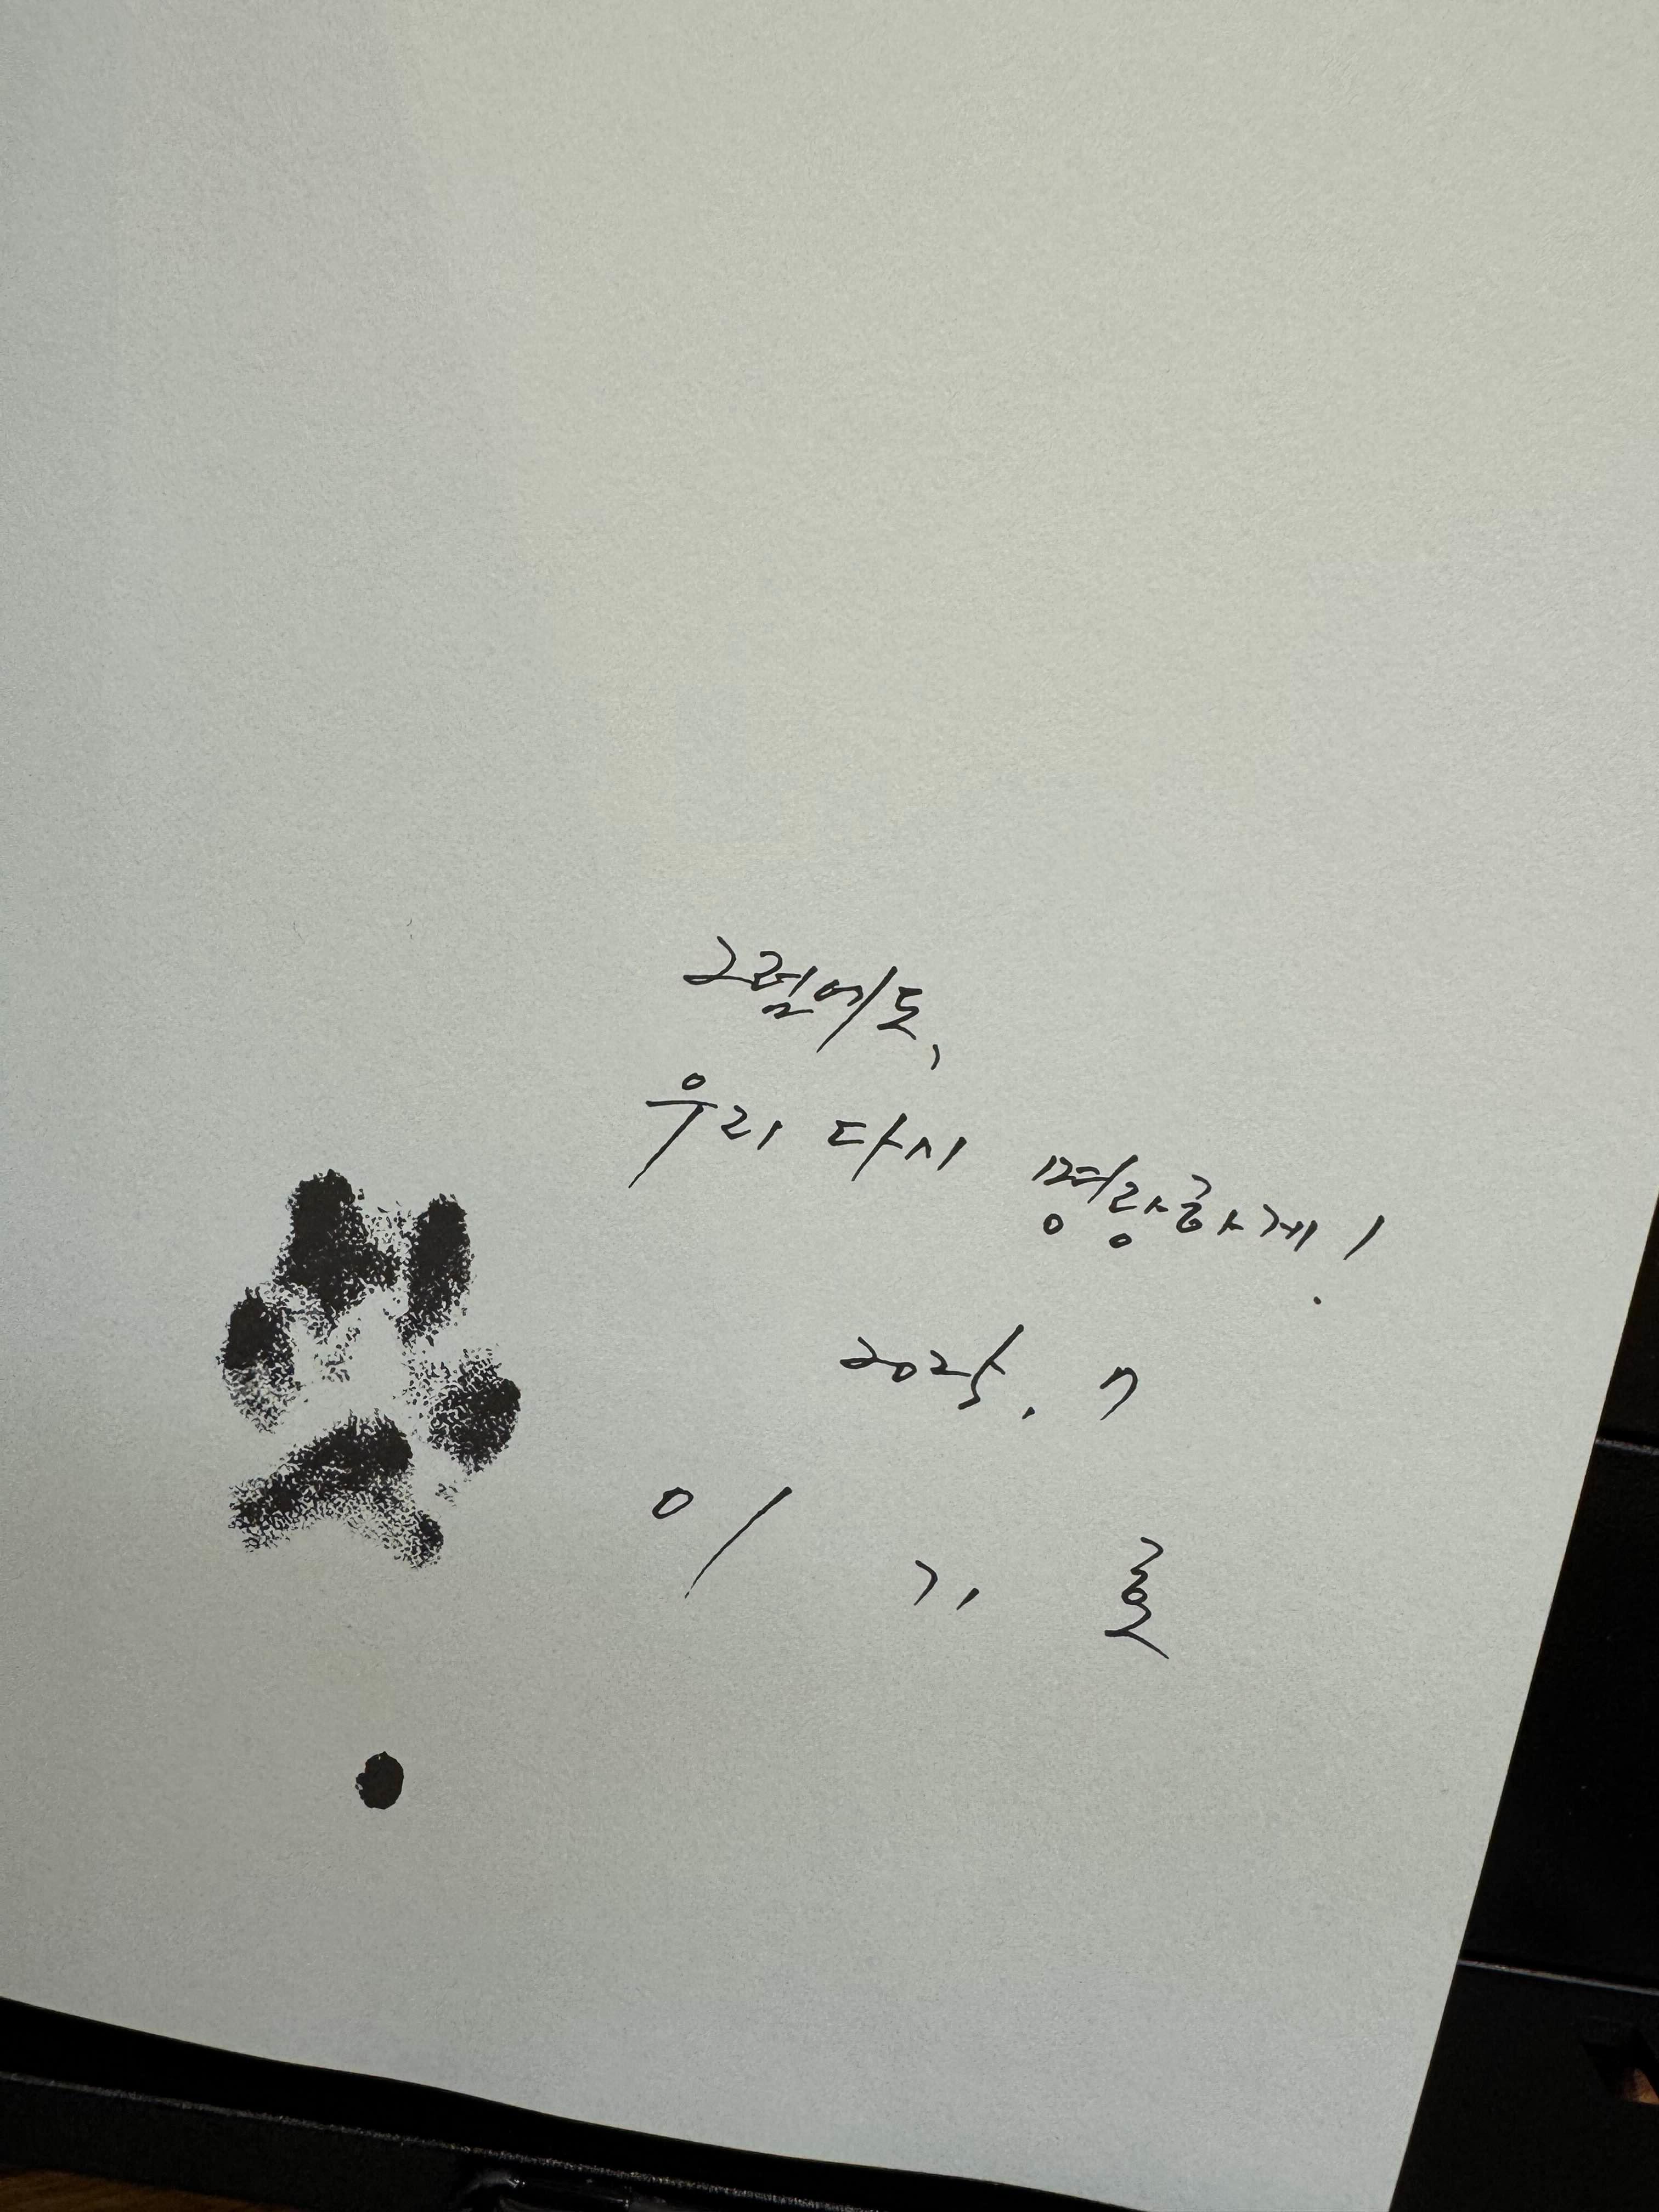 그럼에도,
우리 다시 명랑하게!
2025. 7
이 기 호